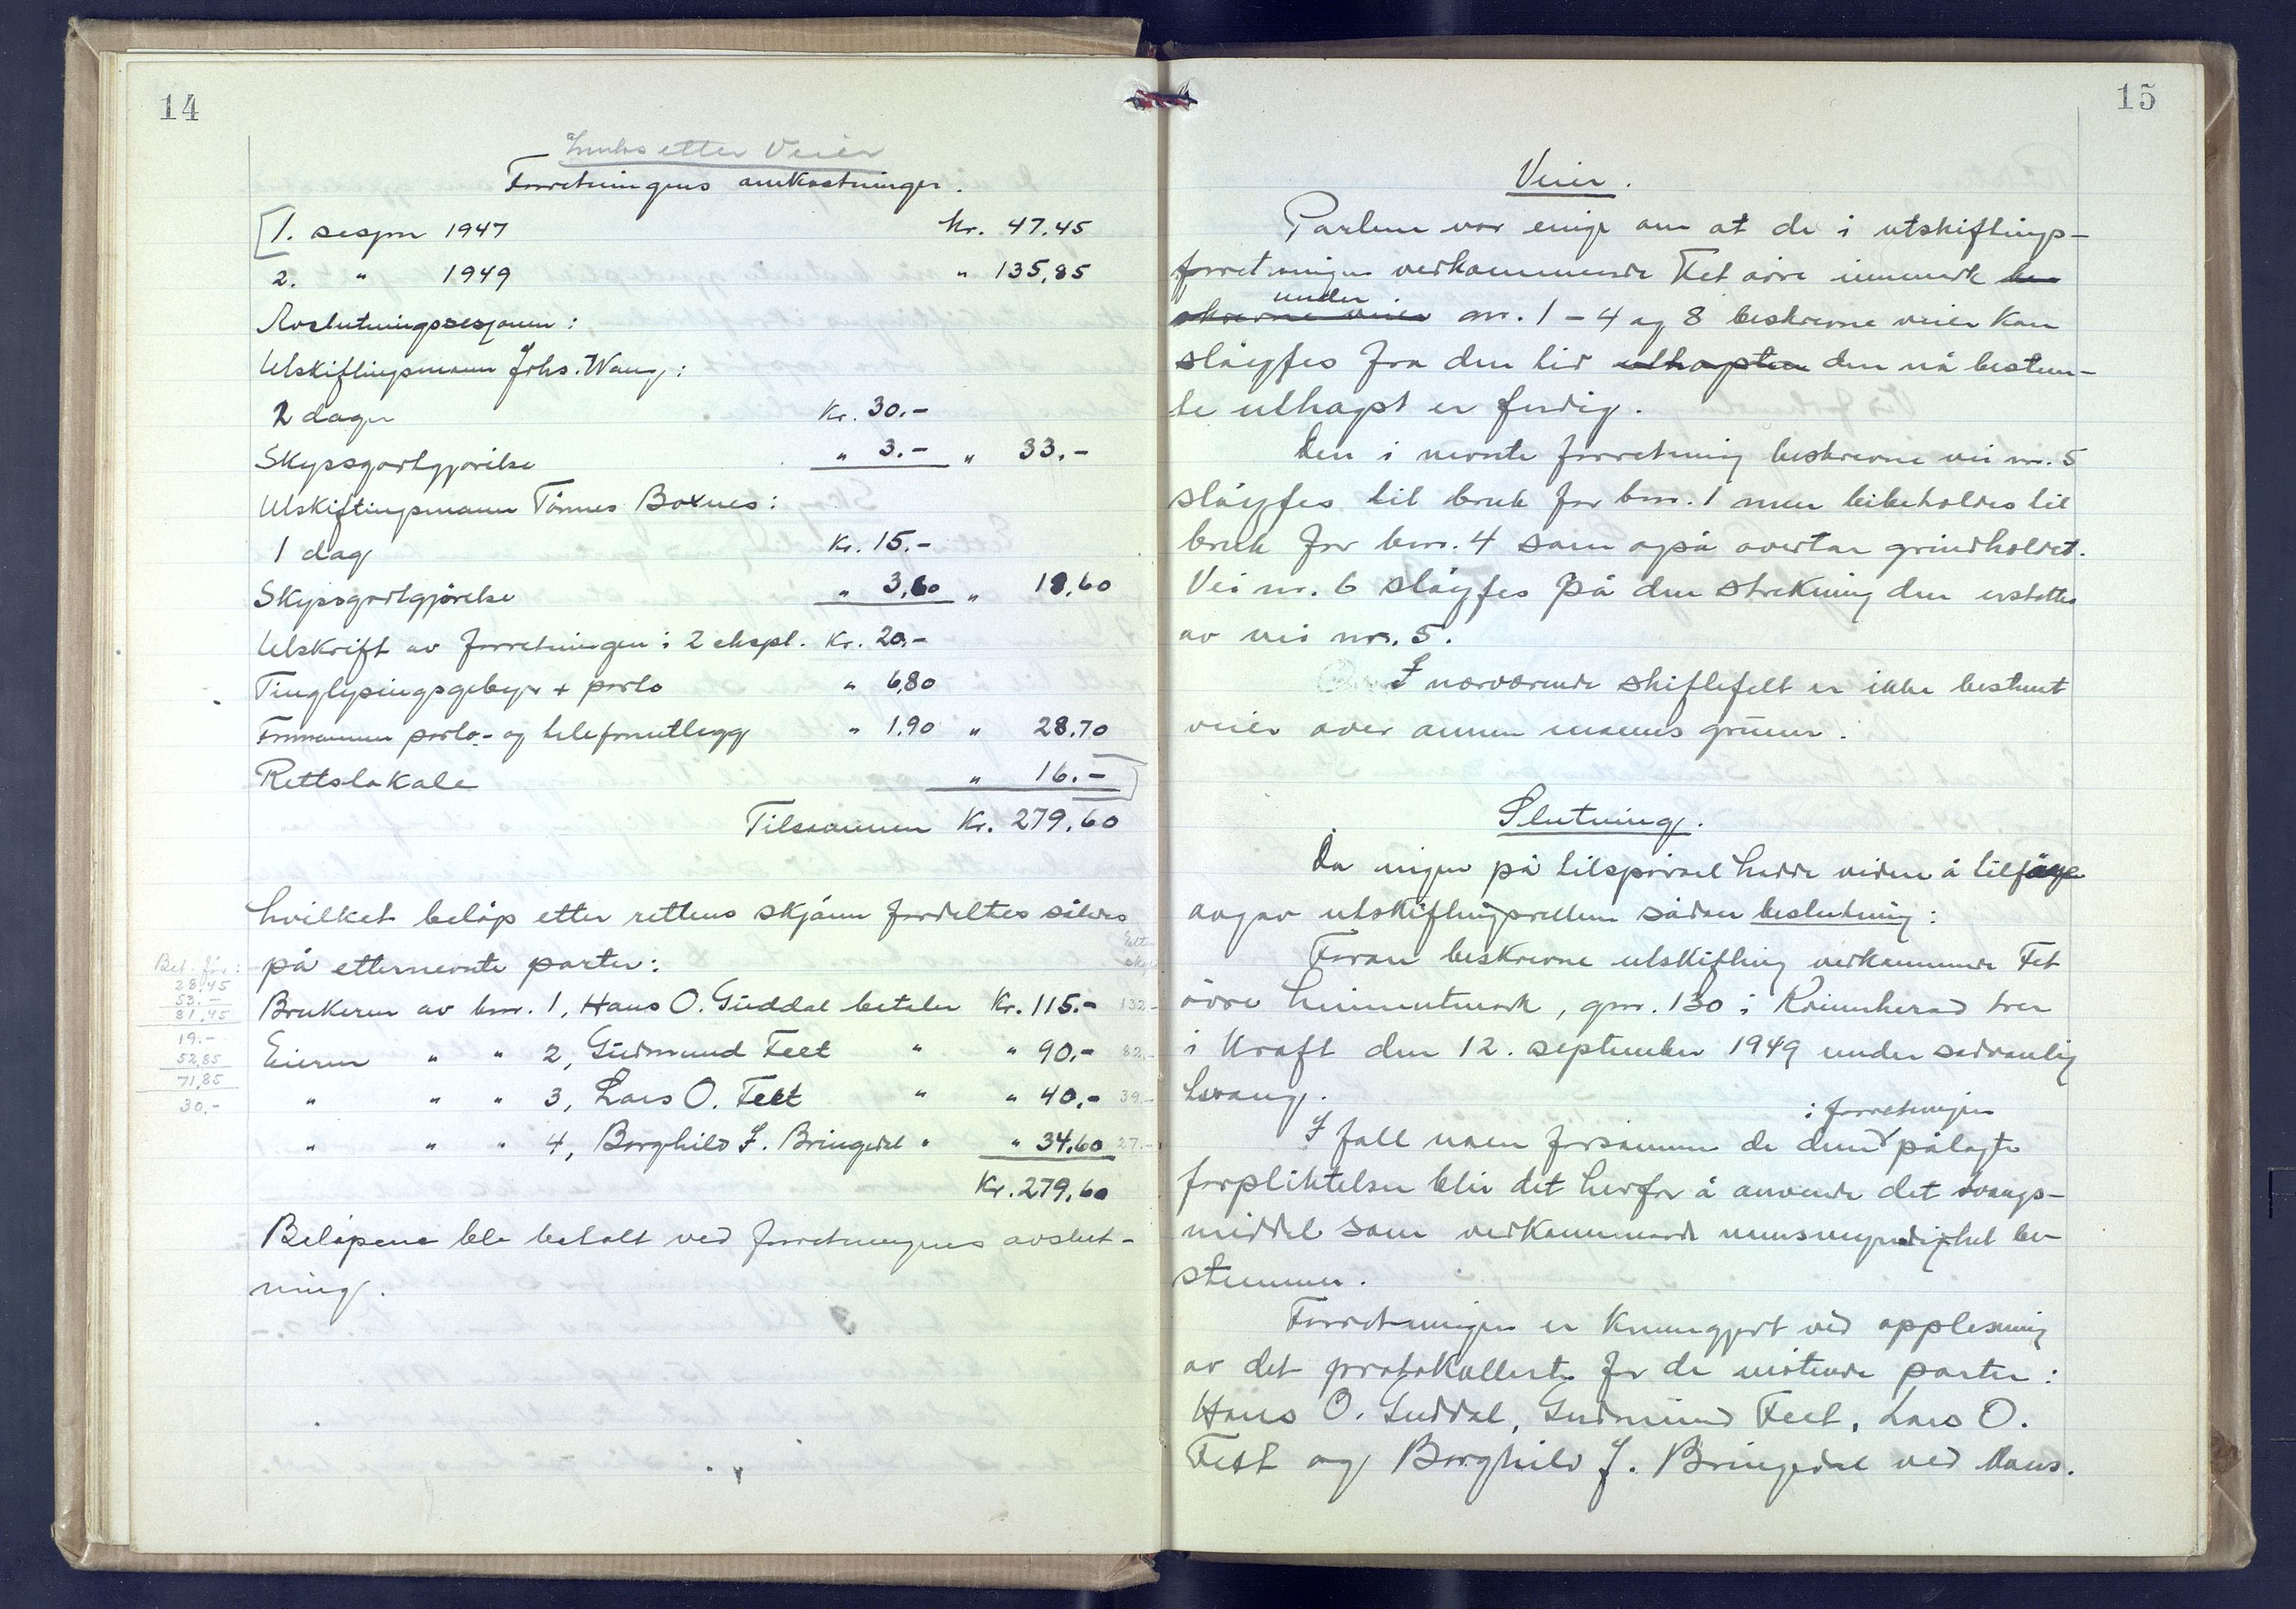 14
Innks etter Veier
Forretningens omkostninger.
1. sesjon 1947 Kr. 47.45
2. " 1949 " 135,85
Avslutningssesjonen:
Utskiftingsmann Johs. Wang:
2 dager Kr. 30.-
Skyssgodtgjørelse " 3.- " 33.-
Utskiftingsmann Tønnes Boxnes:
1 dag Kr. 15.-
Skyssgodtgjørelse " 3,60 " 18,60
Utskrift av forretningen i 2 ekspl. Kr. 20,-
Tinglysingsgebyr + porto " 6,80
Formannen porto- og telefonutlegg " 1.90 " 28.70
Rettslokale " 16.-
Tilsammen Kr. 279,60
hvilket beløp etter rettens skjønn fordeltes således
på etternevnte parter:
Brukeren av bnr. 1, Hans O. Guddal betaler Kr. 115.- 132-
Eieren " " 2, Gudmund Feet " " 90,- 82.-
" " " 3, Lars O. Feet " " 40,- 39-
" " " 4, Borghild J. Bringedal " " 34,60 27.-
Kr. 279,60
Beløpene ble betalt ved forretningens avslut-
ning.
Bet. før:
28,45
53.-
81,45
19.-
52,85
71,85
30.-
15
Veier.
Partene var enige om at de i utskiftings-
forretningen vedkommende Fet øvre innmark be
skrevne veier under nr. 1 - 4 og 8 beskrevne veier kan
sløyfes fra den tid uthogsten den nå bestem-
te uthogst er ferdig.
Den i nevnte forretning beskrevne vei nr. 5
sløyfes til bruk for bnr. 1 men beibeholdes til
bruk for bnr. 4 som også overtar grindholdet.
Vei nr. 6 sløyfes på den strekning den erstattes
av vei nr. 5.
I nærværende skiftefelt er ikke bestemt
veier over annen manns grunn.
Slutning.
Da ingen på tilspørsel hadde videre å tilføye
avgav utskiftingsretten sådan beslutning:
Foran beskrevne utskifting vedkommende Fet
øvre heimeutmark, gnr. 130 i Kvinnherad trer
i kraft den 12. september 1949 under sedvanlig
tvang.
I fall noen forsømmer de dem i forretningen pålagte
forpliktelser blir det herfor å anvende det tvangs-
middel som vedkommende namsmyndighet be-
stemmer.
Forretningen er kunngjort ved opplesning
av det protokollerte for de møtende parter:
Hans O. Guddal, Gudmund Feet, Lars O.
Feet og Borghild J. Bringedal ved Hans.